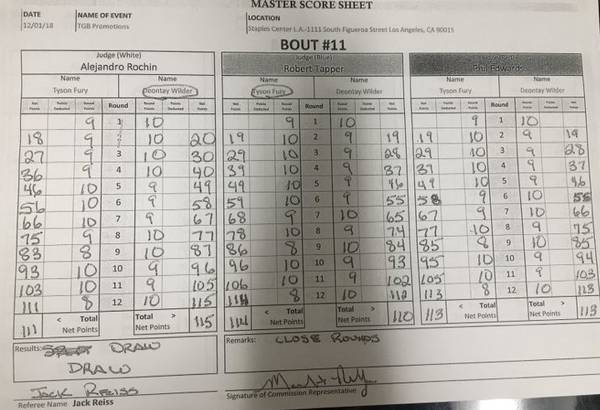 MASTER SCORE SHEET
DATE NAME OF EVENT LOCATION
12/01/18 TGB Promotions Staples Center L.A.-1111 South Figueroa Street Los Angeles, CA 90015
BOUT #11
Judge (White) Judge (Blue)
Alejandro Rochin Robert Tapper Phil Edwards
Name Name Name Name Name Name
Tyson Fury Deontay Wilder Tyson Fury Deontay Wilder Tyson Fury Deontay Wilder
Net Points Points Deducted Round Points Round Round Points Points Deducted Net Points Net Points Points Deducted Round Points Round Round Points Points Deducted Net Points Net Points Points Deducted Round Points Round Round Points Points Deducted Net Points
9 1 10 9 1 10 9 1 10
18 9 2 10 20 19 10 2 9 19 19 10 2 9 19
27 9 3 10 30 29 10 3 9 28 29 10 3 9 28
36 9 4 10 40 39 10 4 9 37 39 10 4 9 37
46 10 5 9 49 49 10 5 9 46 49 10 5 9 46
56 10 6 9 58 59 10 6 9 55 58 9 6 10 56
66 10 7 9 67 68 9 7 10 65 67 9 7 10 66
75 9 8 10 77 78 10 8 9 74 77 10 8 9 75
83 8 9 10 87 86 8 9 10 84 85 8 9 10 85
93 10 10 9 96 96 10 10 9 93 95 10 10 9 94
103 10 11 9 105 106 10 11 9 102 105 10 11 9 103
111 8 12 10 115 114 8 12 10 113 8 12 10 113
111 < Total > 115 114 < Total > 110 113 < Total > 113
Net Points Net Points Net Points
Results: DRAW Remarks: CLOSE ROUNDS
DRAW
Jack Reiss
Referee Name Jack Reiss Signature of Commission Representative